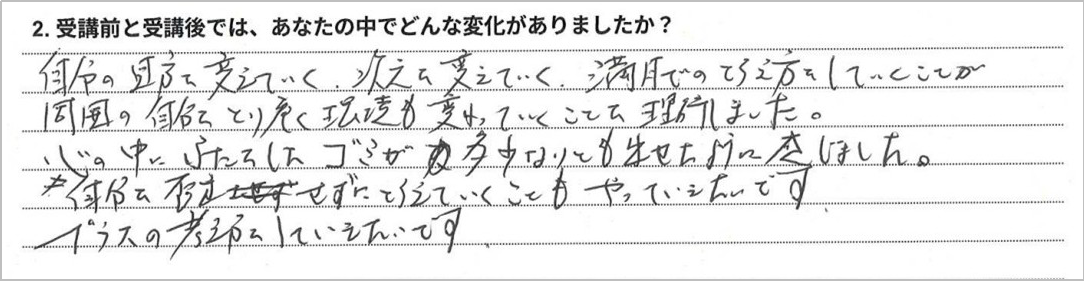 2. 受講前と受講後では、あなたの中でどんな変化がありましたか？
自分の見方を変えていく、次元を変えていく、満月でのとらえ方をしていくことが
周囲の自分をとり巻く環境も変わっていくことを理解しました。
心の中にふたをしたゴミが多少なりとも出せたように感じました。
*自分を否定せずにとらえていくこともやっていきたいです
プラスの考え方をしていきたいです。